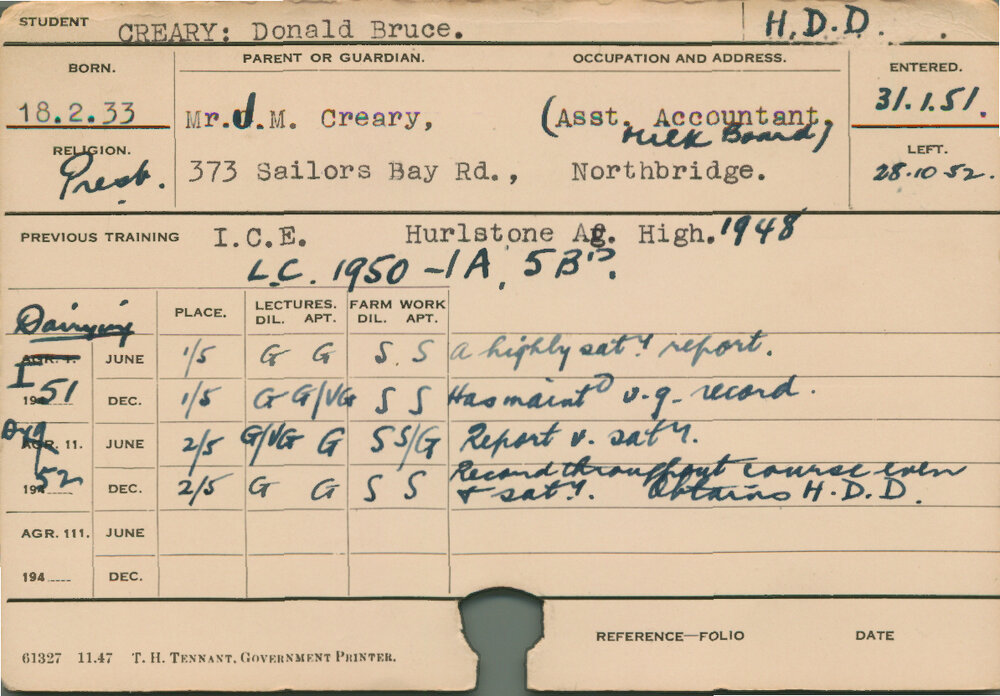 STUDENT CREARY: Donald Bruce. H.D.D.
BORN. PARENT OR GUARDIAN. OCCUPATION AND ADDRESS. ENTERED.
18.2.33 Mr.J.M. Creary, (Asst. Accountant, 31.1.51.
Milk Board)
RELIGION. LEFT.
Presb. 373 Sailors Bay Rd., Northbridge. 28.10.52.
PREVIOUS TRAINING I.C.E. Hurlstone Ag. High. 1948
L.C. 1950 - 1A, 5B's.
Dairying PLACE. LECTURES. FARM WORK
DIL. APT. DIL. APT.
AGR. I. JUNE 1/5 G G S. S A highly sat'y report.
I
1951 DEC. 1/5 G G/VG S S Has maint'd v.g. record.
Dyg
AGR. 11. JUNE 2/5 G/VG G S S/G Report v. sat'y.
Record throughout course even
1952 DEC. 2/5 G G S S & sat'y. Obtains H.D.D.
AGR. 111. JUNE
194 DEC.
REFERENCE—FOLIO DATE
61327 11.47 T. H. TENNANT, GOVERNMENT PRINTER.